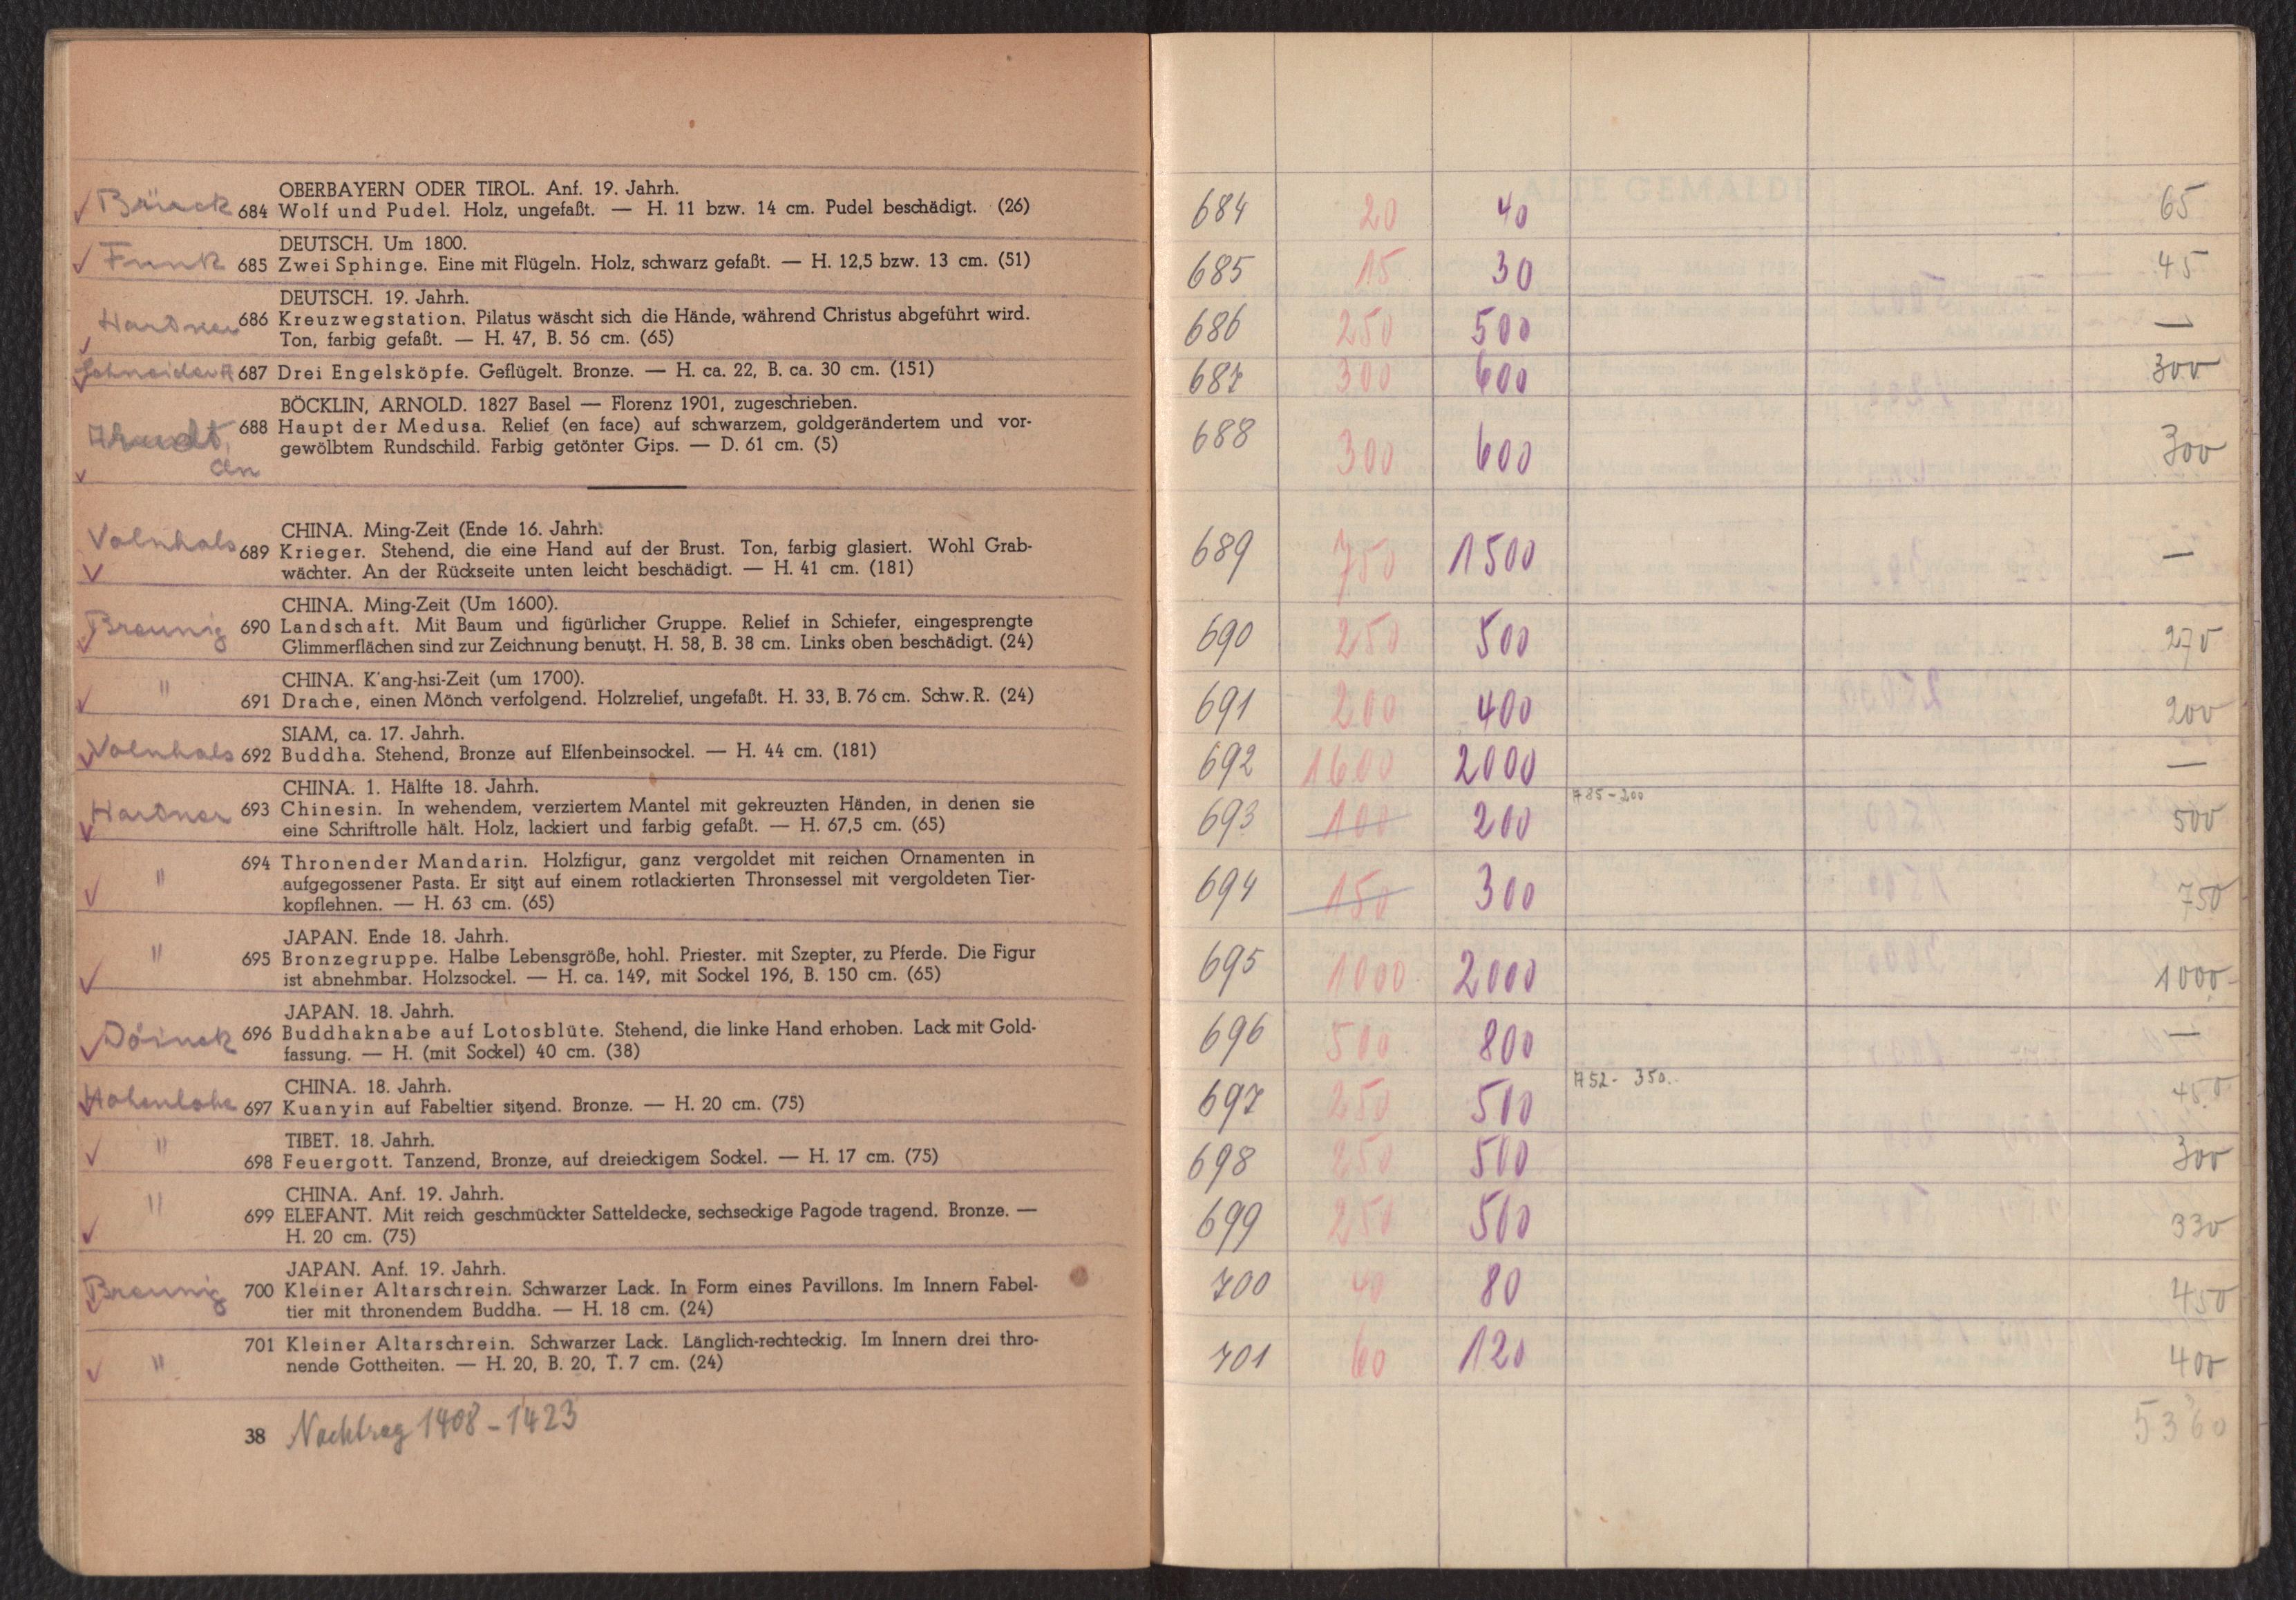 OBERBAYERN ODER TIROL. Anf. 19. Jahrh.
684 Wolf und Pudel. Holz, ungefaßt. — H. 11 bzw. 14 cm. Pudel beschädigt. (26)
DEUTSCH. Um 1800.
Funk 685 Zwei Sphinge. Eine mit Flügeln. Holz, schwarz gefaßt. — H. 12,5 bzw. 13 cm. (51)
DEUTSCH. 19. Jahrh.
Hartner 686 Kreuzwegstation. Pilatus wäscht sich die Hände, während Christus abgeführt wird.
Ton, farbig gefaßt. — H. 47, B. 56 cm. (65)
687 Drei Engelsköpfe. Geflügelt. Bronze. — H. ca. 22, B. ca. 30 cm. (151)
BÖCKLIN, ARNOLD. 1827 Basel — Florenz 1901, zugeschrieben.
688 Haupt der Medusa. Relief (en face) auf schwarzem, goldgerändertem und vor-
gewölbtem Rundschild. Farbig getönter Gips. — D. 61 cm. (5)
CHINA. Ming-Zeit (Ende 16. Jahrh.
Volnhals 689 Krieger. Stehend, die eine Hand auf der Brust. Ton, farbig glasiert. Wohl Grab-
wächter. An der Rückseite unten leicht beschädigt. — H. 41 cm. (181)
CHINA. Ming-Zeit (Um 1600).
Breunig 690 Landschaft. Mit Baum und figürlicher Gruppe. Relief in Schiefer, eingesprengte
Glimmerflächen sind zur Zeichnung benutzt. H. 58, B. 38 cm. Links oben beschädigt. (24)
CHINA. K'ang-hsi-Zeit (um 1700).
" 691 Drache, einen Mönch verfolgend. Holzrelief, ungefaßt. H. 33, B. 76 cm. Schw. R. (24)
SIAM, ca. 17. Jahrh.
Volnhals 692 Buddha. Stehend, Bronze auf Elfenbeinsockel. — H. 44 cm. (181)
CHINA. 1. Hälfte 18. Jahrh.
Hartner 693 Chinesin. In wehendem, verziertem Mantel mit gekreuzten Händen, in denen sie
eine Schriftrolle hält. Holz, lackiert und farbig gefaßt. — H. 67,5 cm. (65)
694 Thronender Mandarin. Holzfigur, ganz vergoldet mit reichen Ornamenten in
" aufgegossener Pasta. Er sitzt auf einem rotlackierten Thronsessel mit vergoldeten Tier-
kopflehnen. — H. 63 cm. (65)
JAPAN. Ende 18. Jahrh.
" 695 Bronzegruppe. Halbe Lebensgröße, hohl. Priester. mit Szepter, zu Pferde. Die Figur
ist abnehmbar. Holzsockel. — H. ca. 149, mit Sockel 196, B. 150 cm. (65)
JAPAN. 18. Jahrh.
696 Buddhaknabe auf Lotosblüte. Stehend, die linke Hand erhoben. Lack mit Gold-
fassung. — H. (mit Sockel) 40 cm. (38)
CHINA. 18. Jahrh.
Hohenlohe 697 Kuanyin auf Fabeltier sitzend. Bronze. — H. 20 cm. (75)
TIBET. 18. Jahrh.
" 698 Feuergott. Tanzend, Bronze, auf dreieckigem Sockel. — H. 17 cm. (75)
CHINA. Anf. 19. Jahrh.
" 699 ELEFANT. Mit reich geschmückter Satteldecke, sechseckige Pagode tragend. Bronze. —
H. 20 cm. (75)
JAPAN. Anf. 19. Jahrh.
Breunig 700 Kleiner Altarschrein. Schwarzer Lack. In Form eines Pavillons. Im Innern Fabel-
tier mit thronendem Buddha. — H. 18 cm. (24)
701 Kleiner Altarschrein. Schwarzer Lack. Länglich-rechteckig. Im Innern drei thro-
" nende Gottheiten. — H. 20, B. 20, T. 7 cm. (24)
38 Nachtrag 1408 - 1423
684 20 40 65
685 15 30 45
686 250 500 —
687 300 600 300
688 300 600 300
689 750 1500 —
690 250 500 270
691 200 400 200
692 1600 2000 —
785 - 200
693 100 200 500
694 150 300 750
695 1000 2000 1000
696 500 800 —
752 - 350.
697 250 500 450
698 250 500 300
699 250 500 330
700 40 80 450
701 60 120 400
5360